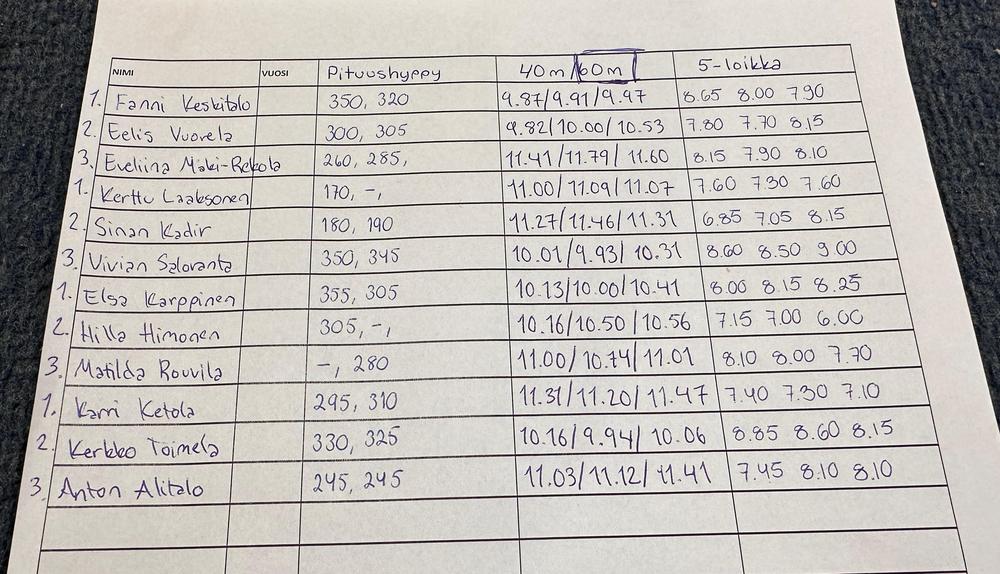 NIMI VUOSI Pituushyppy 40m/60m 5-loikka
1. Fanni Keskitalo 350, 320 9.87/9.91/9.97 8.65 8.00 7.90
2. Eelis Vuorela 300, 305 9.82/10.00/10.53 7.80 7.70 8.15
3. Eveliina Mäki-Rekola 260, 285, 11.41/11.79/11.60 8.15 7.90 8.10
1. Kerttu Laaksonen 170, -, 11.00/11.09/11.07 7.60 7.30 7.60
2. Sinan Kadir 180, 190 11.27/11.46/11.31 6.85 7.05 8.15
3. Vivian Saloranta 350, 345 10.01/9.93/10.31 8.60 8.50 9.00
1. Elsa Karppinen 355, 305 10.13/10.00/10.41 8.00 8.15 8.25
2. Hilla Himonen 305, -, 10.16/10.50/10.56 7.15 7.00 6.00
3. Matilda Rouvila -, 280 11.00/10.74/11.01 8.10 8.00 7.70
1. Karri Ketola 295, 310 11.31/11.20/11.47 7.40 7.30 7.10
2. Kerkko Toimela 330, 325 10.16/9.94/10.06 8.85 8.60 8.15
3. Anton Alitalo 245, 245 11.03/11.12/11.41 7.45 8.10 8.10